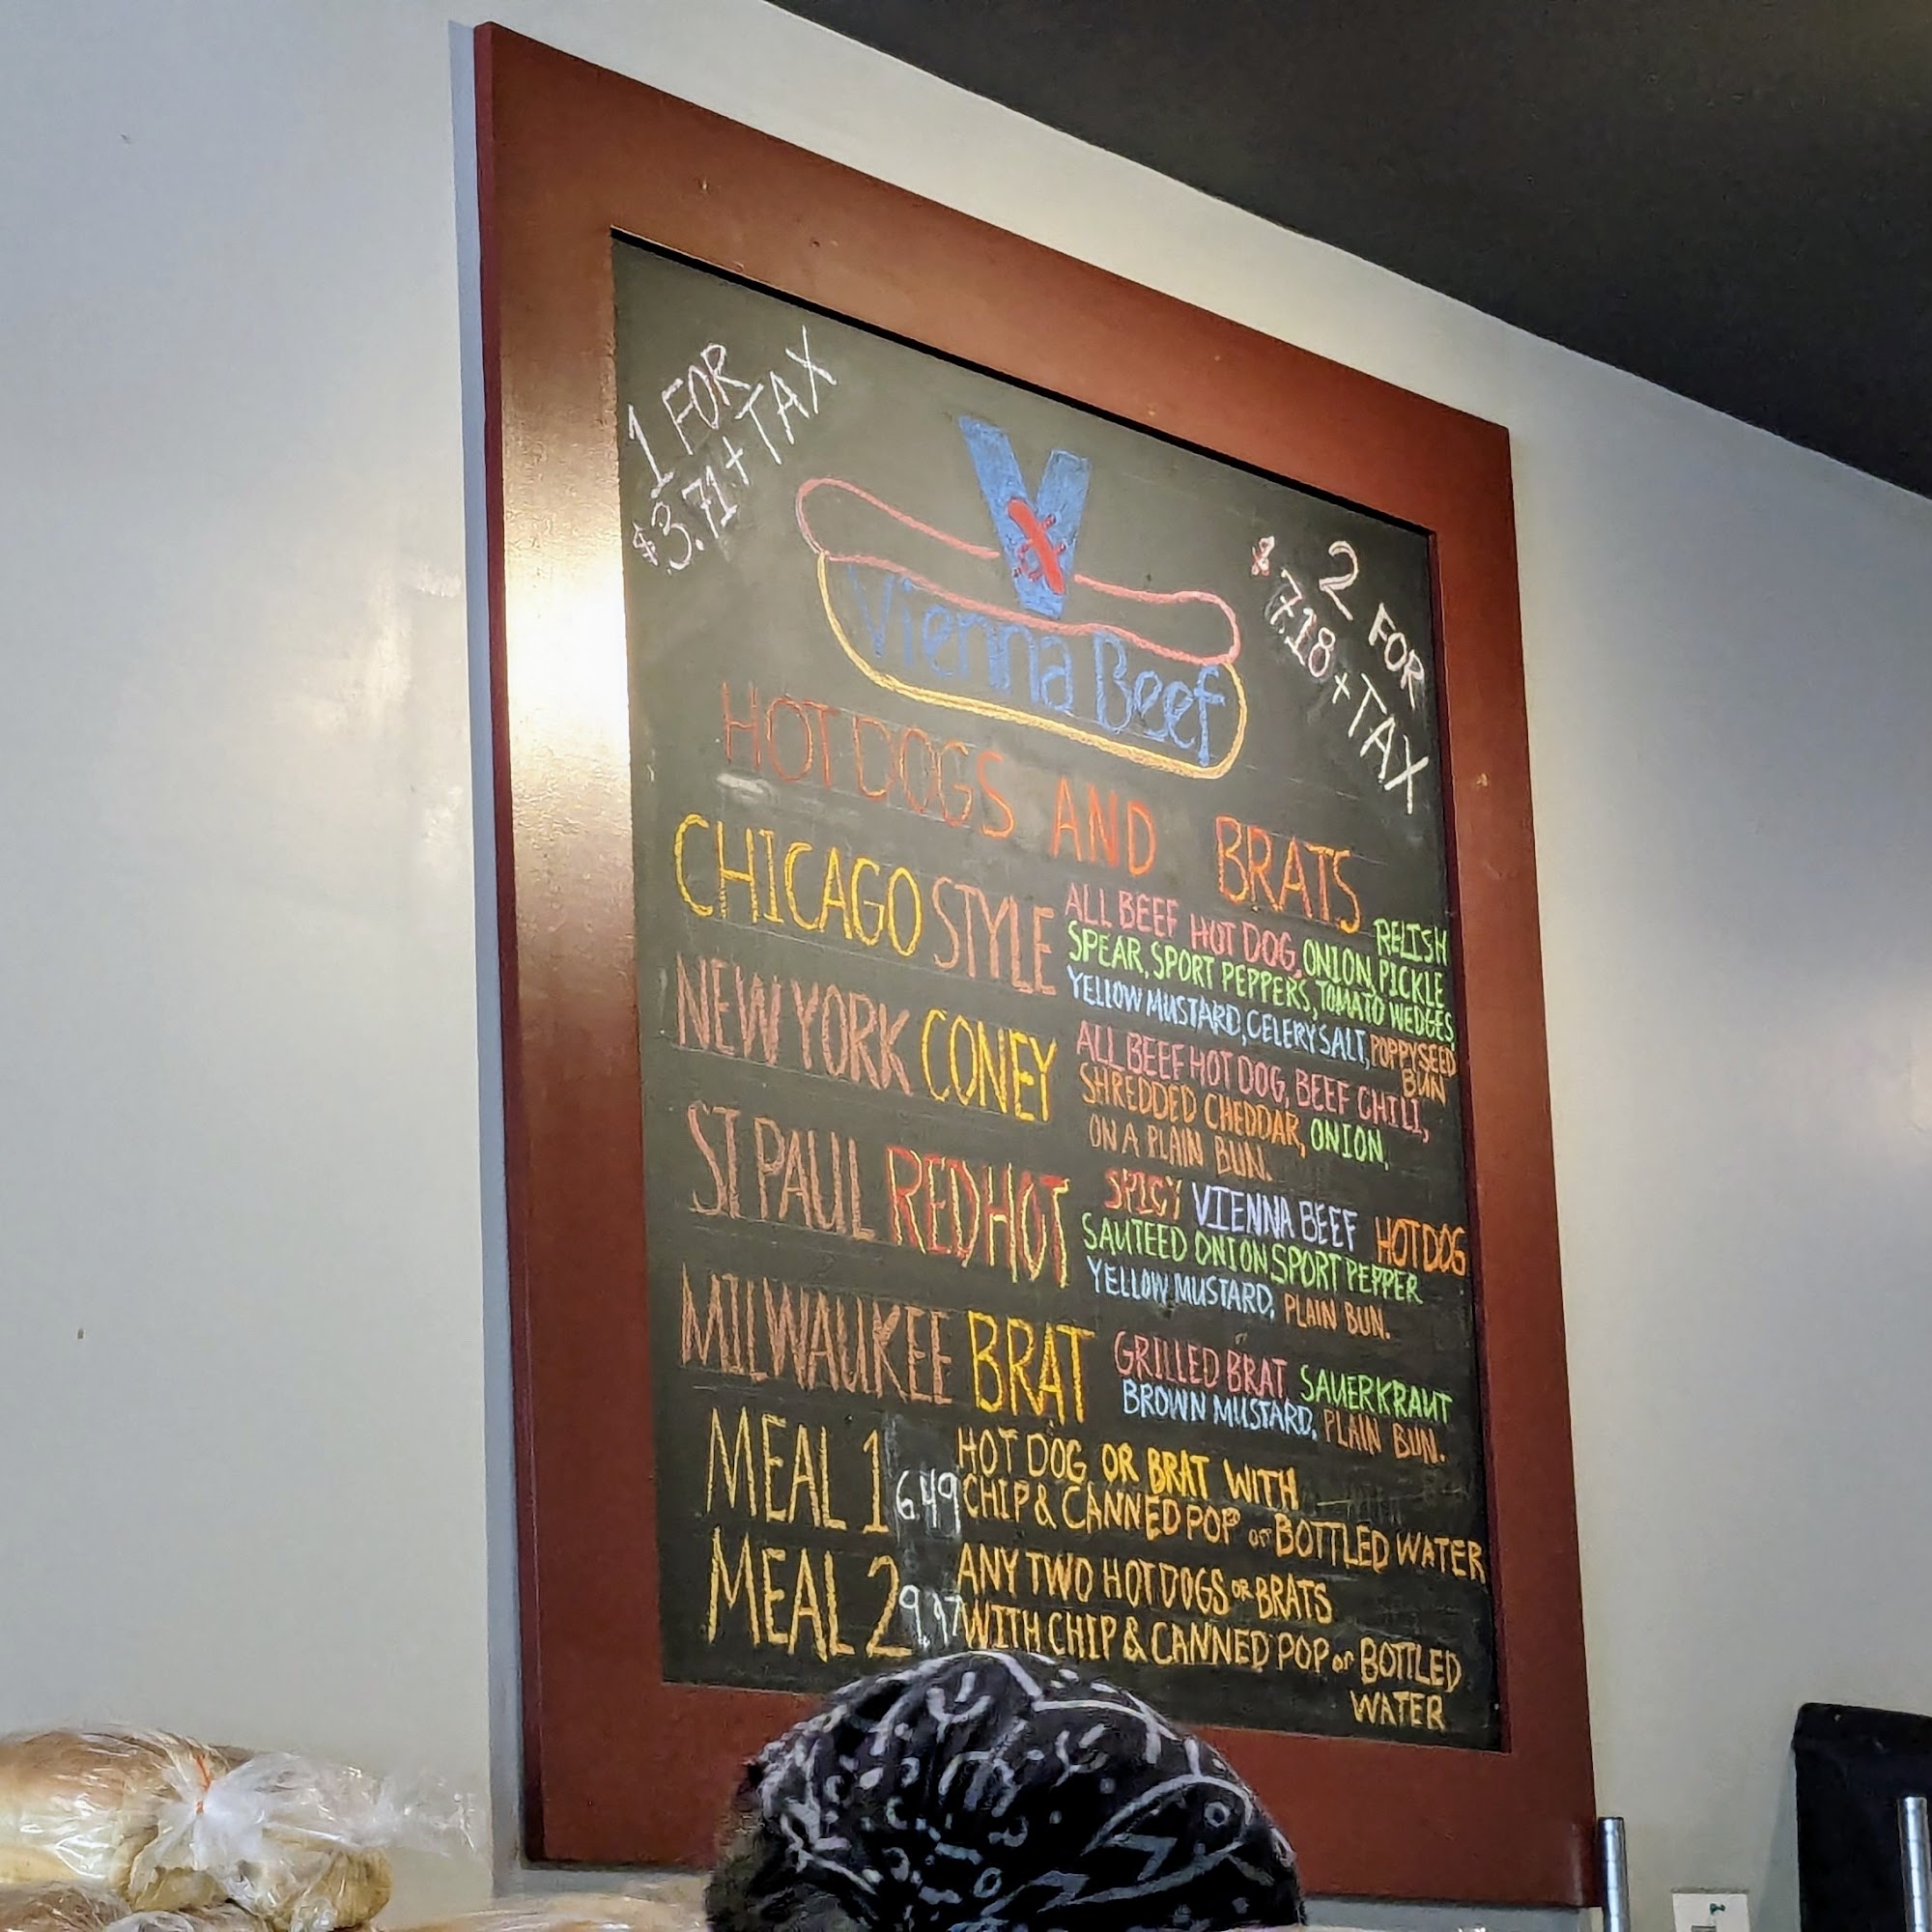 1 FOR
$3.71+TAX
2 FOR
$7.18+TAX
V
Vienna Beef
HOT DOGS AND BRATS
CHICAGO STYLE
ALL BEEF HOT DOG, ONION, RELISH
SPEAR, SPORT PEPPERS, TOMATO WEDGES, PICKLE
YELLOW MUSTARD, CELERY SALT, POPPYSEED
BUN
NEW YORK CONEY
ALL BEEF HOT DOG, BEEF CHILI,
SHREDDED CHEDDAR, ONION,
ON A PLAIN BUN.
ST PAUL RED HOT
SPICY VIENNA BEEF HOT DOG
SAUTEED ONION SPORT PEPPER
YELLOW MUSTARD, PLAIN BUN.
MILWAUKEE BRAT
GRILLED BRAT, SAUERKRAUT
BROWN MUSTARD, PLAIN BUN.
MEAL 1 6.49
HOT DOG OR BRAT WITH
CHIP & CANNED POP or BOTTLED WATER
MEAL 2 9.97
ANY TWO HOT DOGS OR BRATS
WITH CHIP & CANNED POP or BOTTLED
WATER